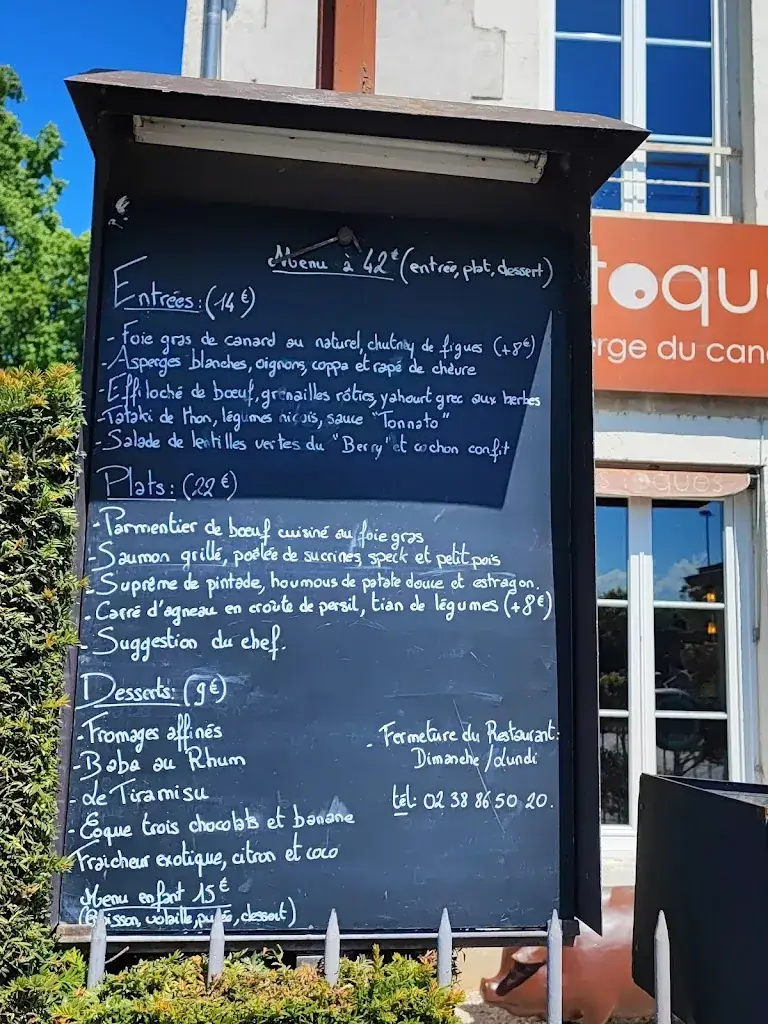 Menu à 42€ (entrée, plat, dessert)
Entrées: (14 €)
- Foie gras de canard au naturel, chutney de figues (+8€)
- Asperges blanches, oignons, coppa et rapé de chèvre
- Effiloché de bœuf, grenailles rôties, yahourt grec aux herbes
- Tataki de thon, légumes niçois, sauce "Tonnato"
- Salade de lentilles vertes du "Berry" et cochon confit
Plats: (22 €)
- Parmentier de bœuf cuisiné au foie gras
- Saumon grillé, poêlée de sucrines, speck et petit pois
- Suprême de pintade, houmous de patate douce et estragon.
- Carré d'agneau en croûte de persil, tian de légumes (+8€)
- Suggestion du chef.
Desserts: (9€)
- Fromages affinés
- Baba au Rhum
- Le Tiramisu
- Coque trois chocolats et banane
Fraicheur exotique, citron et coco
Menu enfant 15€
(Boisson, volaille, purée, dessert)
- Fermeture du Restaurant:
Dimanche / Lundi
tél: 02 38 86 50 20.
toqu
erge du can
s toques